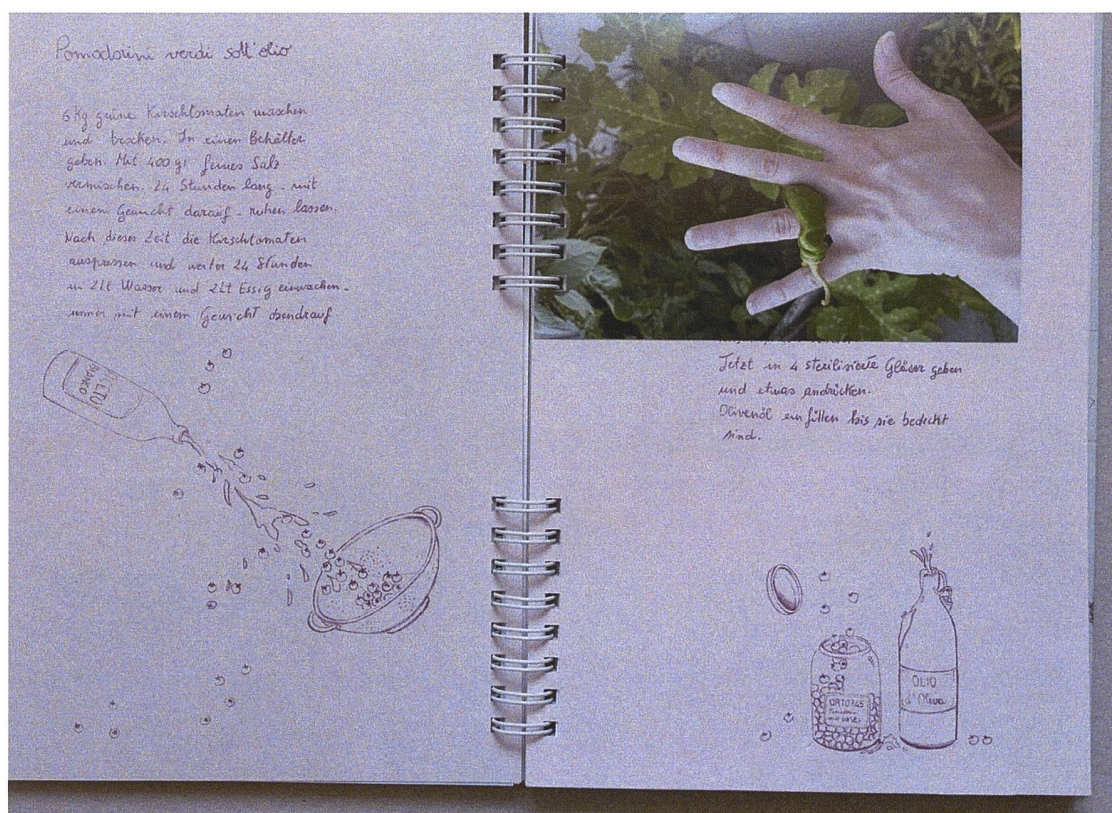 Pomodorini verdi sott'olio
6 Kg grüne Kirschtomaten waschen
und trocken. In einen Behälter
geben. Mit 400 gr feines Salz
vermischen. 24 Stunden lang - mit
einem Gewicht darauf - ruhen lassen.
Nach dieser Zeit die Kirschtomaten
auspressen und weiter 24 Stunden
in 2lt Wasser und 2lt Essig einwachen -
immer mit einem Gewicht obendrauf
ACETO
BIANCO
Jetzt in 4 sterilisierte Gläser geben
und etwas andrücken.
Olivenöl einfüllen bis sie bedeckt
sind.
ORTO 
OLIO
d'Oliva